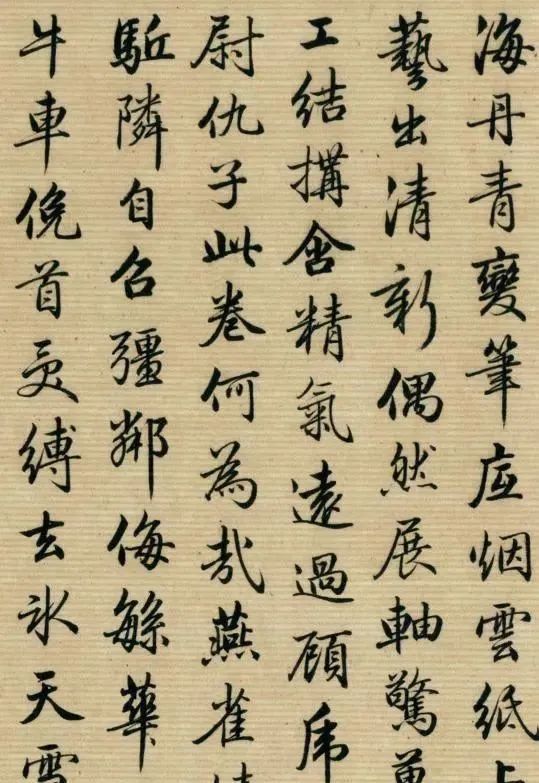 海丹青變筆底烟雲紙上
藝出清新偶然展軸驚
工結搆含精氣遠過顧虎
尉仇子此卷何為哉燕雀
駈隣自召疆鄰侮緐華
牛車俛首受縛去氷天雪